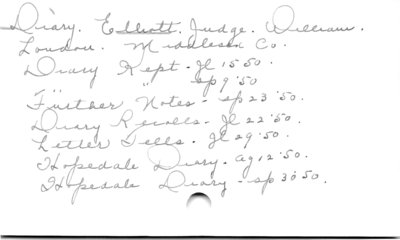 Diary. Elliott. Judge. William.
London. Middlesex Co.
Diary Kept - Jl 15 '50.
" " Sp 9 '50
Further Notes - Sp 23 '50.
Diary Recalls - Jl 22 '50.
Letter Tells - Jl 29 '50.
Hopedale Diary - Ag 12 '50.
Hopedale Diary - Sp 30 '50.